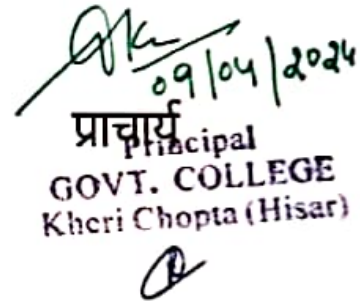 09/04/2024
प्राचार्य
Principal
GOVT. COLLEGE
Kheri Chopta (Hisar)